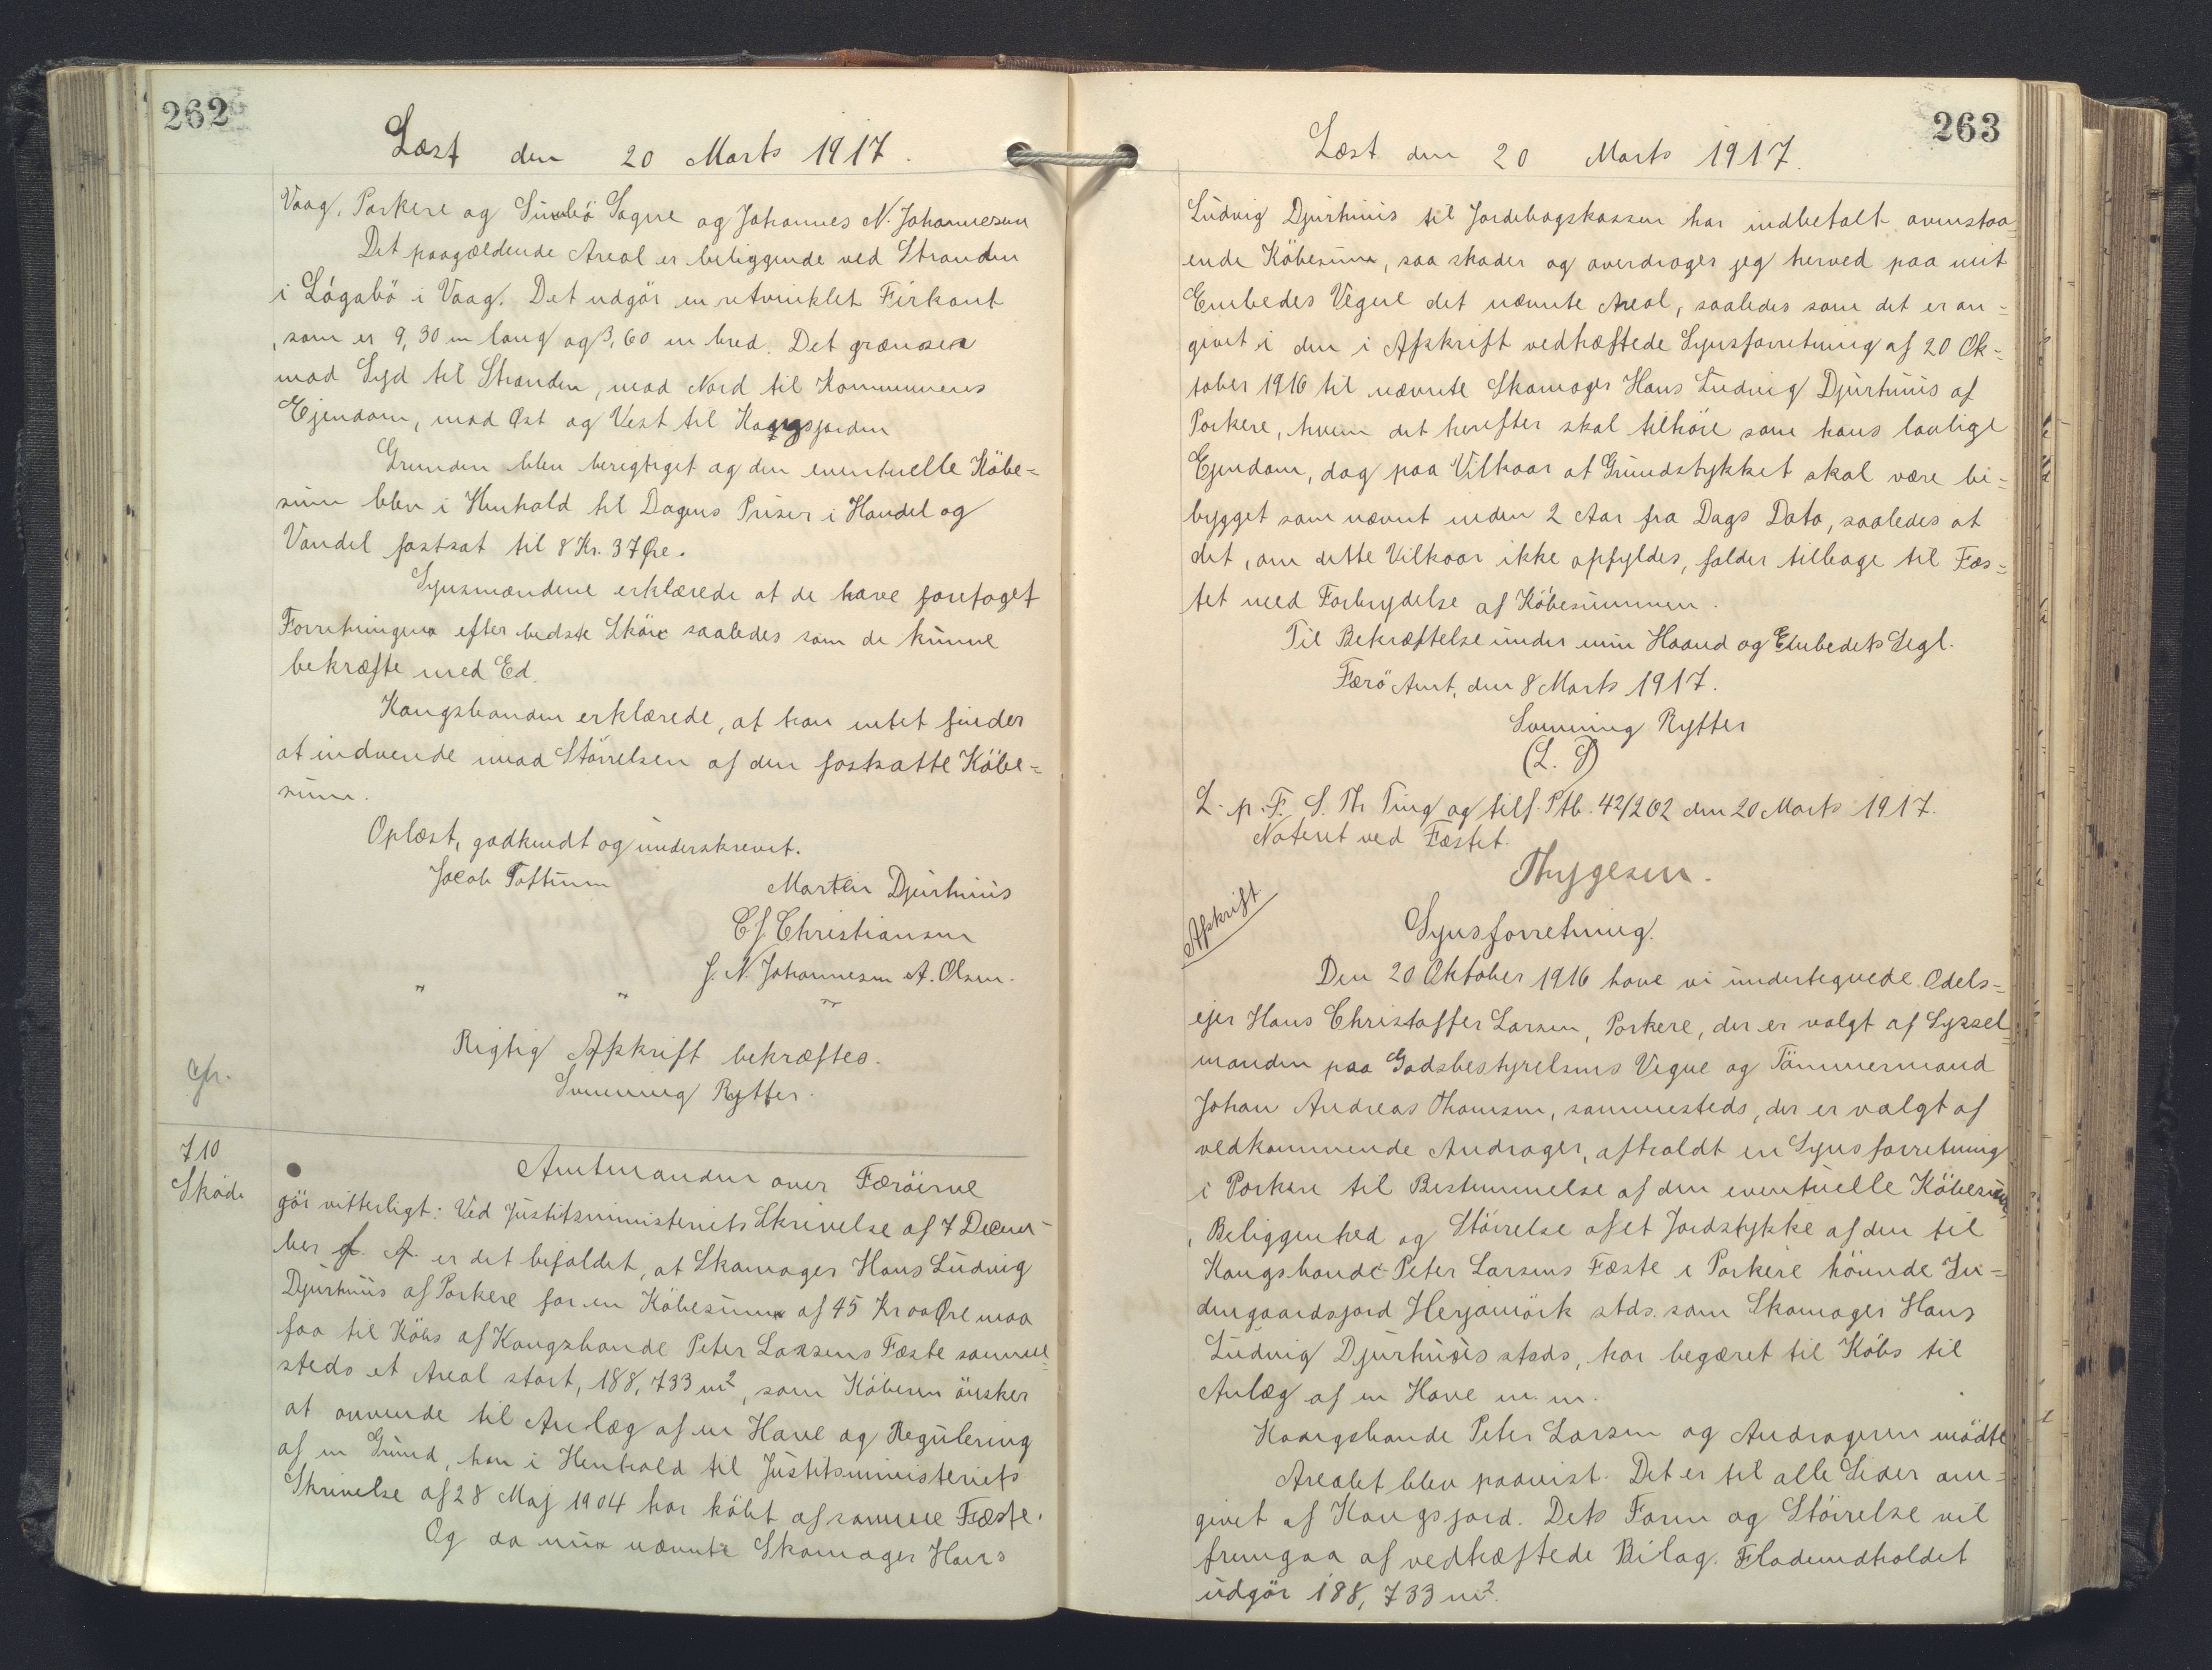 262
Læst den 20 Marts 1917.
Vaag, Porkere og Sumbö Sogne og Johannes N. Johannesen
Det paagældende Areal er beliggende ved Stranden
i Lógabö i Vaag. Det udgör en retvinklet Firkant
, som er 9,30 m lang og 3,60 m bred. Det grænser
mod Syd til Stranden, mod Nord til Kommunens
Ejendom, mod Øst og Vest til Kongsjorden
Grunden blev berigtiget og den eventuelle Köbe=
sum blev i Henhold til Dagens Priser i Handel og
Vandel fastsat til 8 Kr. 37 Øre.
Synsmændene erklærede at de have foretaget
Forretningen efter bedste Skön saaledes som de kunne
bekræfte med Ed.
Kongsbonden erklærede, at han intet finder
at indvende mod Störrelsen af den fastsatte Köbe=
sum.
Oplæst, godkendt og underskrevet.
Jacob Toftum Morten Djurhuus
C J Christiansen
J. N. Johannesen A. Olsen.
" " "
Rigtig Afskrift bekræftes.
Svenning Rytter.
710
Sköde
Amtmanden over Færöerne
gör vitterligt: Ved Justitsministeriets Skrivelse af 7 Decem-
ber f. A. er det bifaldet, at Skomager Hans Ludvig
Djurhuus af Porkere for en Köbesum af 45 Kr 00 Øre maa
faa til Köbs af Kongsbonde Peter Larsens Fæste samme=
steds et Areal stort, 188,733 m², som Köberen önsker
at anvende til Anlæg af en Have og Regulering
af en Grund, han i Henhold til Justitsministeriets
Skrivelse af 28 Maj 1904 har köbt af samme Fæste.
Og da nu nævnte Skomager Hans
263
Læst den 20 Marts 1917.
Ludvig Djurhuus til Jordebogskassen har indbetalt ovenstaa=
ende Köbesum, saa skøder og overdrager jeg herved paa mit
Embedes Vegne det nævnte Areal, saaledes som det er an=
givet i den i Afskrift vedhæftede Synsforretning af 20 Ok=
tober 1916 til nævnte Skomager Hans Ludvig Djurhuus af
Porkere, hvem det herefter skal tilhöre som hans lovlige
Ejendom, dog paa Vilkaar at Grundstykket skal være be=
bygget som nævnt inden 2 Aar fra Dags Dato, saaledes at
det, om dette Vilkaar ikke opfyldes, falder tilbage til Fæs=
tet med Forbrydelse af Köbesummen.
Til Bekræftelse under min Haand og Embedets Segl.
Færö Amt, den 8 Marts 1917.
Svenning Rytter
(L. S)
L. p. F. S. Th Ting og tilf. Ptb. 42/262 den 20 Marts 1917.
Noteret ved Fæstet.
Thygesen.
Afskrift
Synsforretning.
Den 20 Oktober 1916 have vi undertegnede Odels=
ejer Hans Christoffer Larsen, Porkere, der er valgt af Syssel=
manden paa Godsbestyrelsens Vegne og Tömmermand
Johan Andreas Thomsen, sammesteds, der er valgt af
vedkommende Andrager, afholdt en Synsforretning
i Porkere til Bestemmelse af den eventuelle Köbesum
, Beliggenhed og Störrelse af et Jordstykke af den til
Kongsbonde Peter Larsens Fæste i Porkere hörende In=
dengaardsjord Herjamörk stds. som Skomager Hans
Ludvig Djurhuus stds, har begæret til Köbs til
Anlæg af en Have m. m.
Kongsbonde Peter Larsen og Andrageren mödte
Arealet blev paavist. Det er til alle Sider om=
givet af Kongsjord. Dets Form og Störrelse vil
fremgaa af vedhæftede Bilag. Fladeindholdet
udgör 188,733 m².